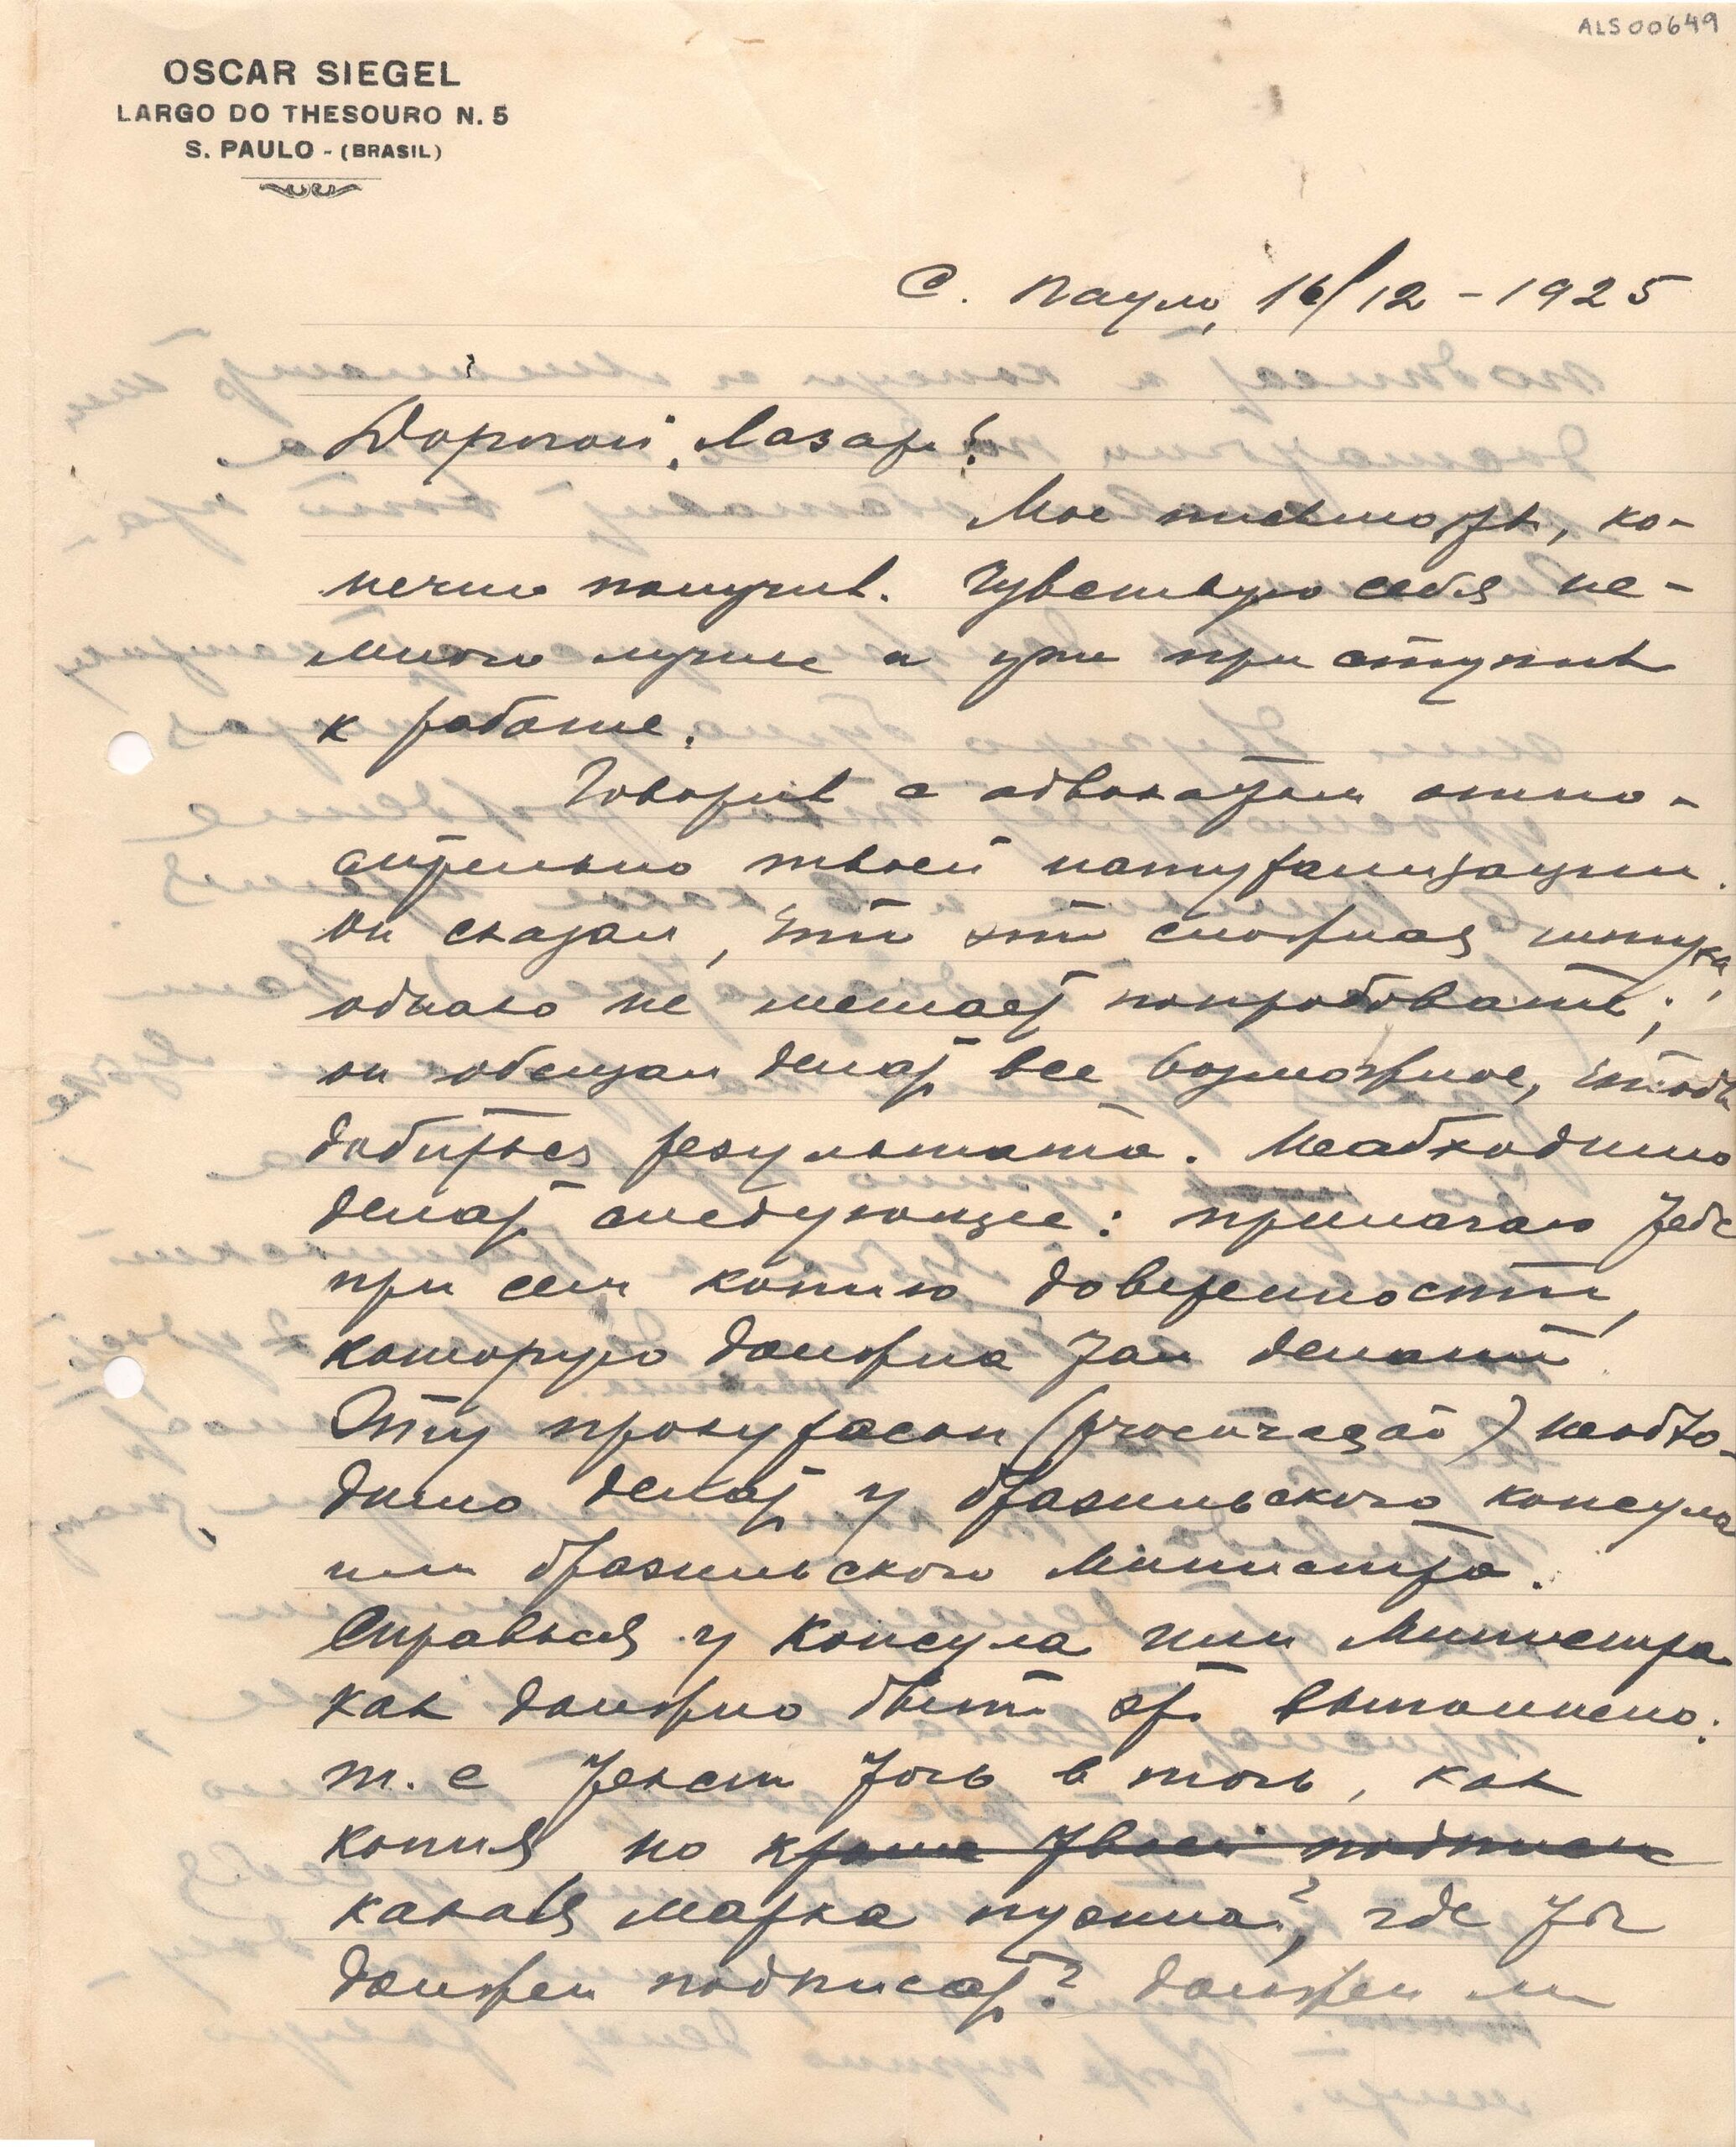 ALS00649
OSCAR SIEGEL
LARGO DO THESOURO N. 5
S. PAULO - (BRASIL)
С. Пауло, 16/12 - 1925
Дорогой Лазарь!
Мое письмо ты, ко-
нечно получил. Чувствую себя не-
много лучше и уже приступил
к работе.
Говорил с адвокатом отно-
сительно твоей натурализации.
Он сказал, что это сложная штука,
однако не мешает попробовать;
он обещал делать все возможное, чтобы
добиться результата. Необходимо
делать следующее: прилагаю тебе
при сем копию доверенности,
которую должна там делать
Эту прокурасон (procuração) необхо-
димо делать у бразильского консула
или бразильского Министра.
Справься у Консула или Министра
как должно быть это выполнено:
т. е текст точь в точь, как
копия, но кроме твоей подписи
какая марка нужна?, где ты
должен подписать? должен ли